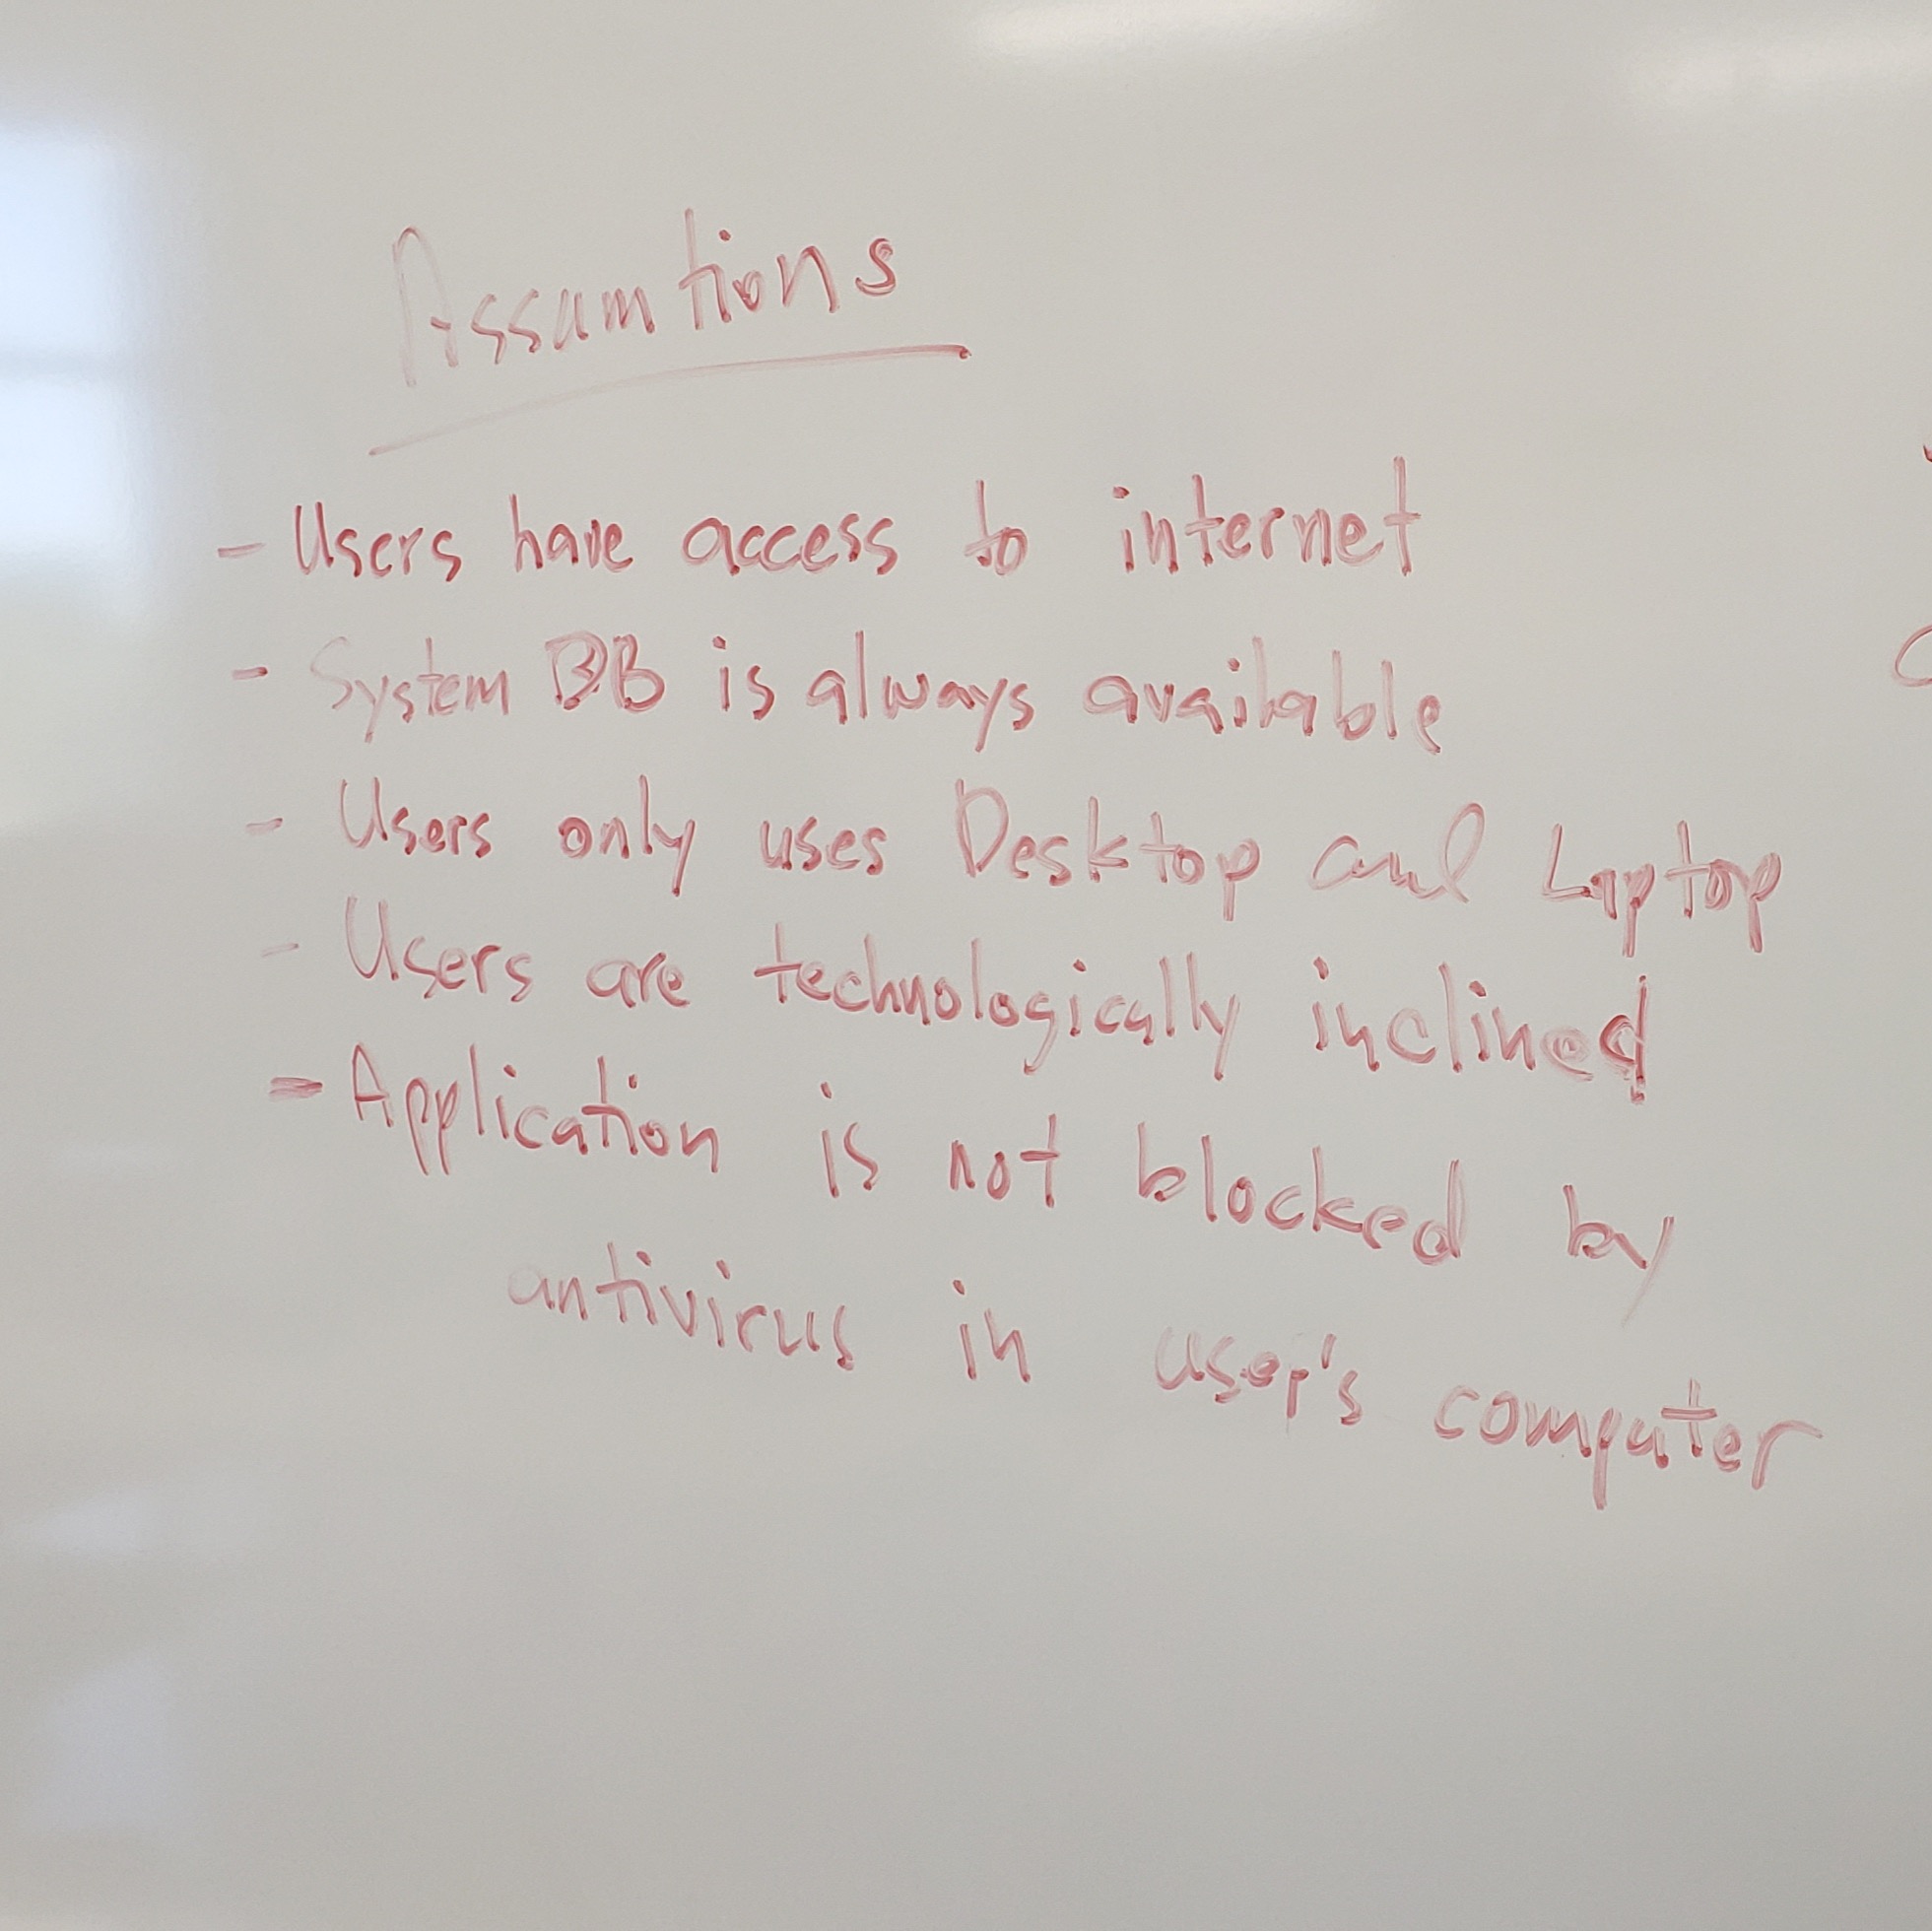 Assumtions
- Users have access to internet
- System DB is always available
- Users only uses Desktop and Laptop
- Users are technologically inclined
- Application is not blocked by
antivirus in user's computer